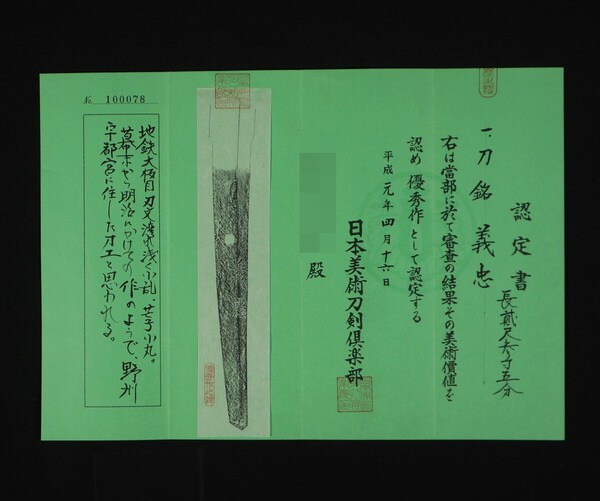 認定書
一、刀 銘 義忠
長貳尺壱寸五分
右は當部に於て審査の結果その美術價値を
認め優秀作として認定する
平成元年四月十六日
殿
日本美術刀剣倶楽部
№ 100078
地鉄大板目刃文湾れ浅く小乱、芒子小丸。
幕末から明治にかけての作のようで、野州
宇都宮に住した刀工と思われる。